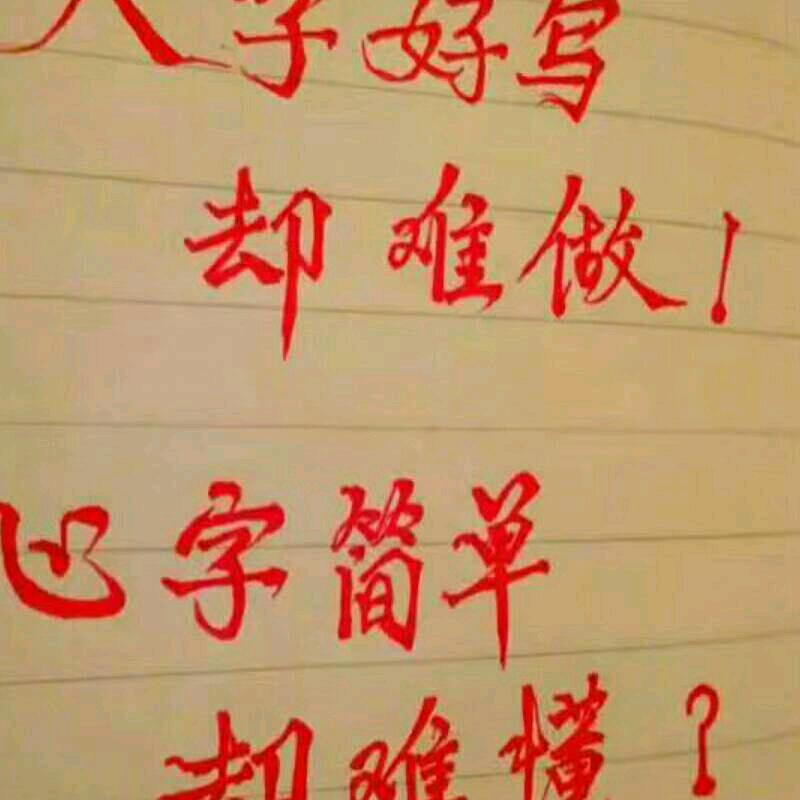 人字好写
却难做！
心字简单
却难懂？